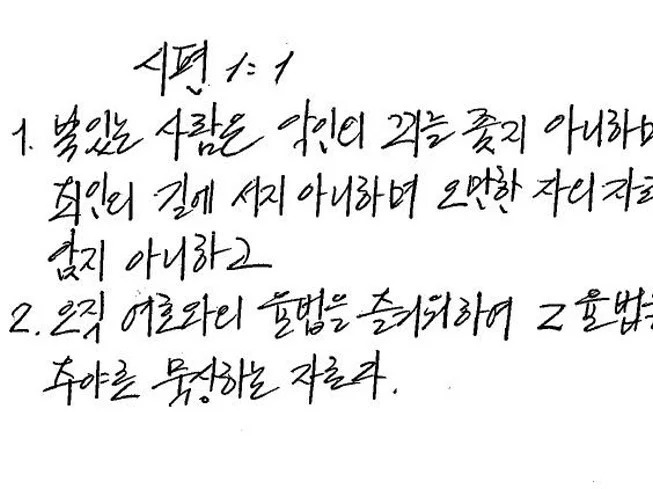 시편 1:1
1. 복있는 사람은 악인의 꾀를 좇지 아니하며
죄인의 길에 서지 아니하며 오만한 자의 자리
앉지 아니하고
2. 오직 여호와의 율법을 즐거워하여 그 율법을
주야로 묵상하는 자로다.